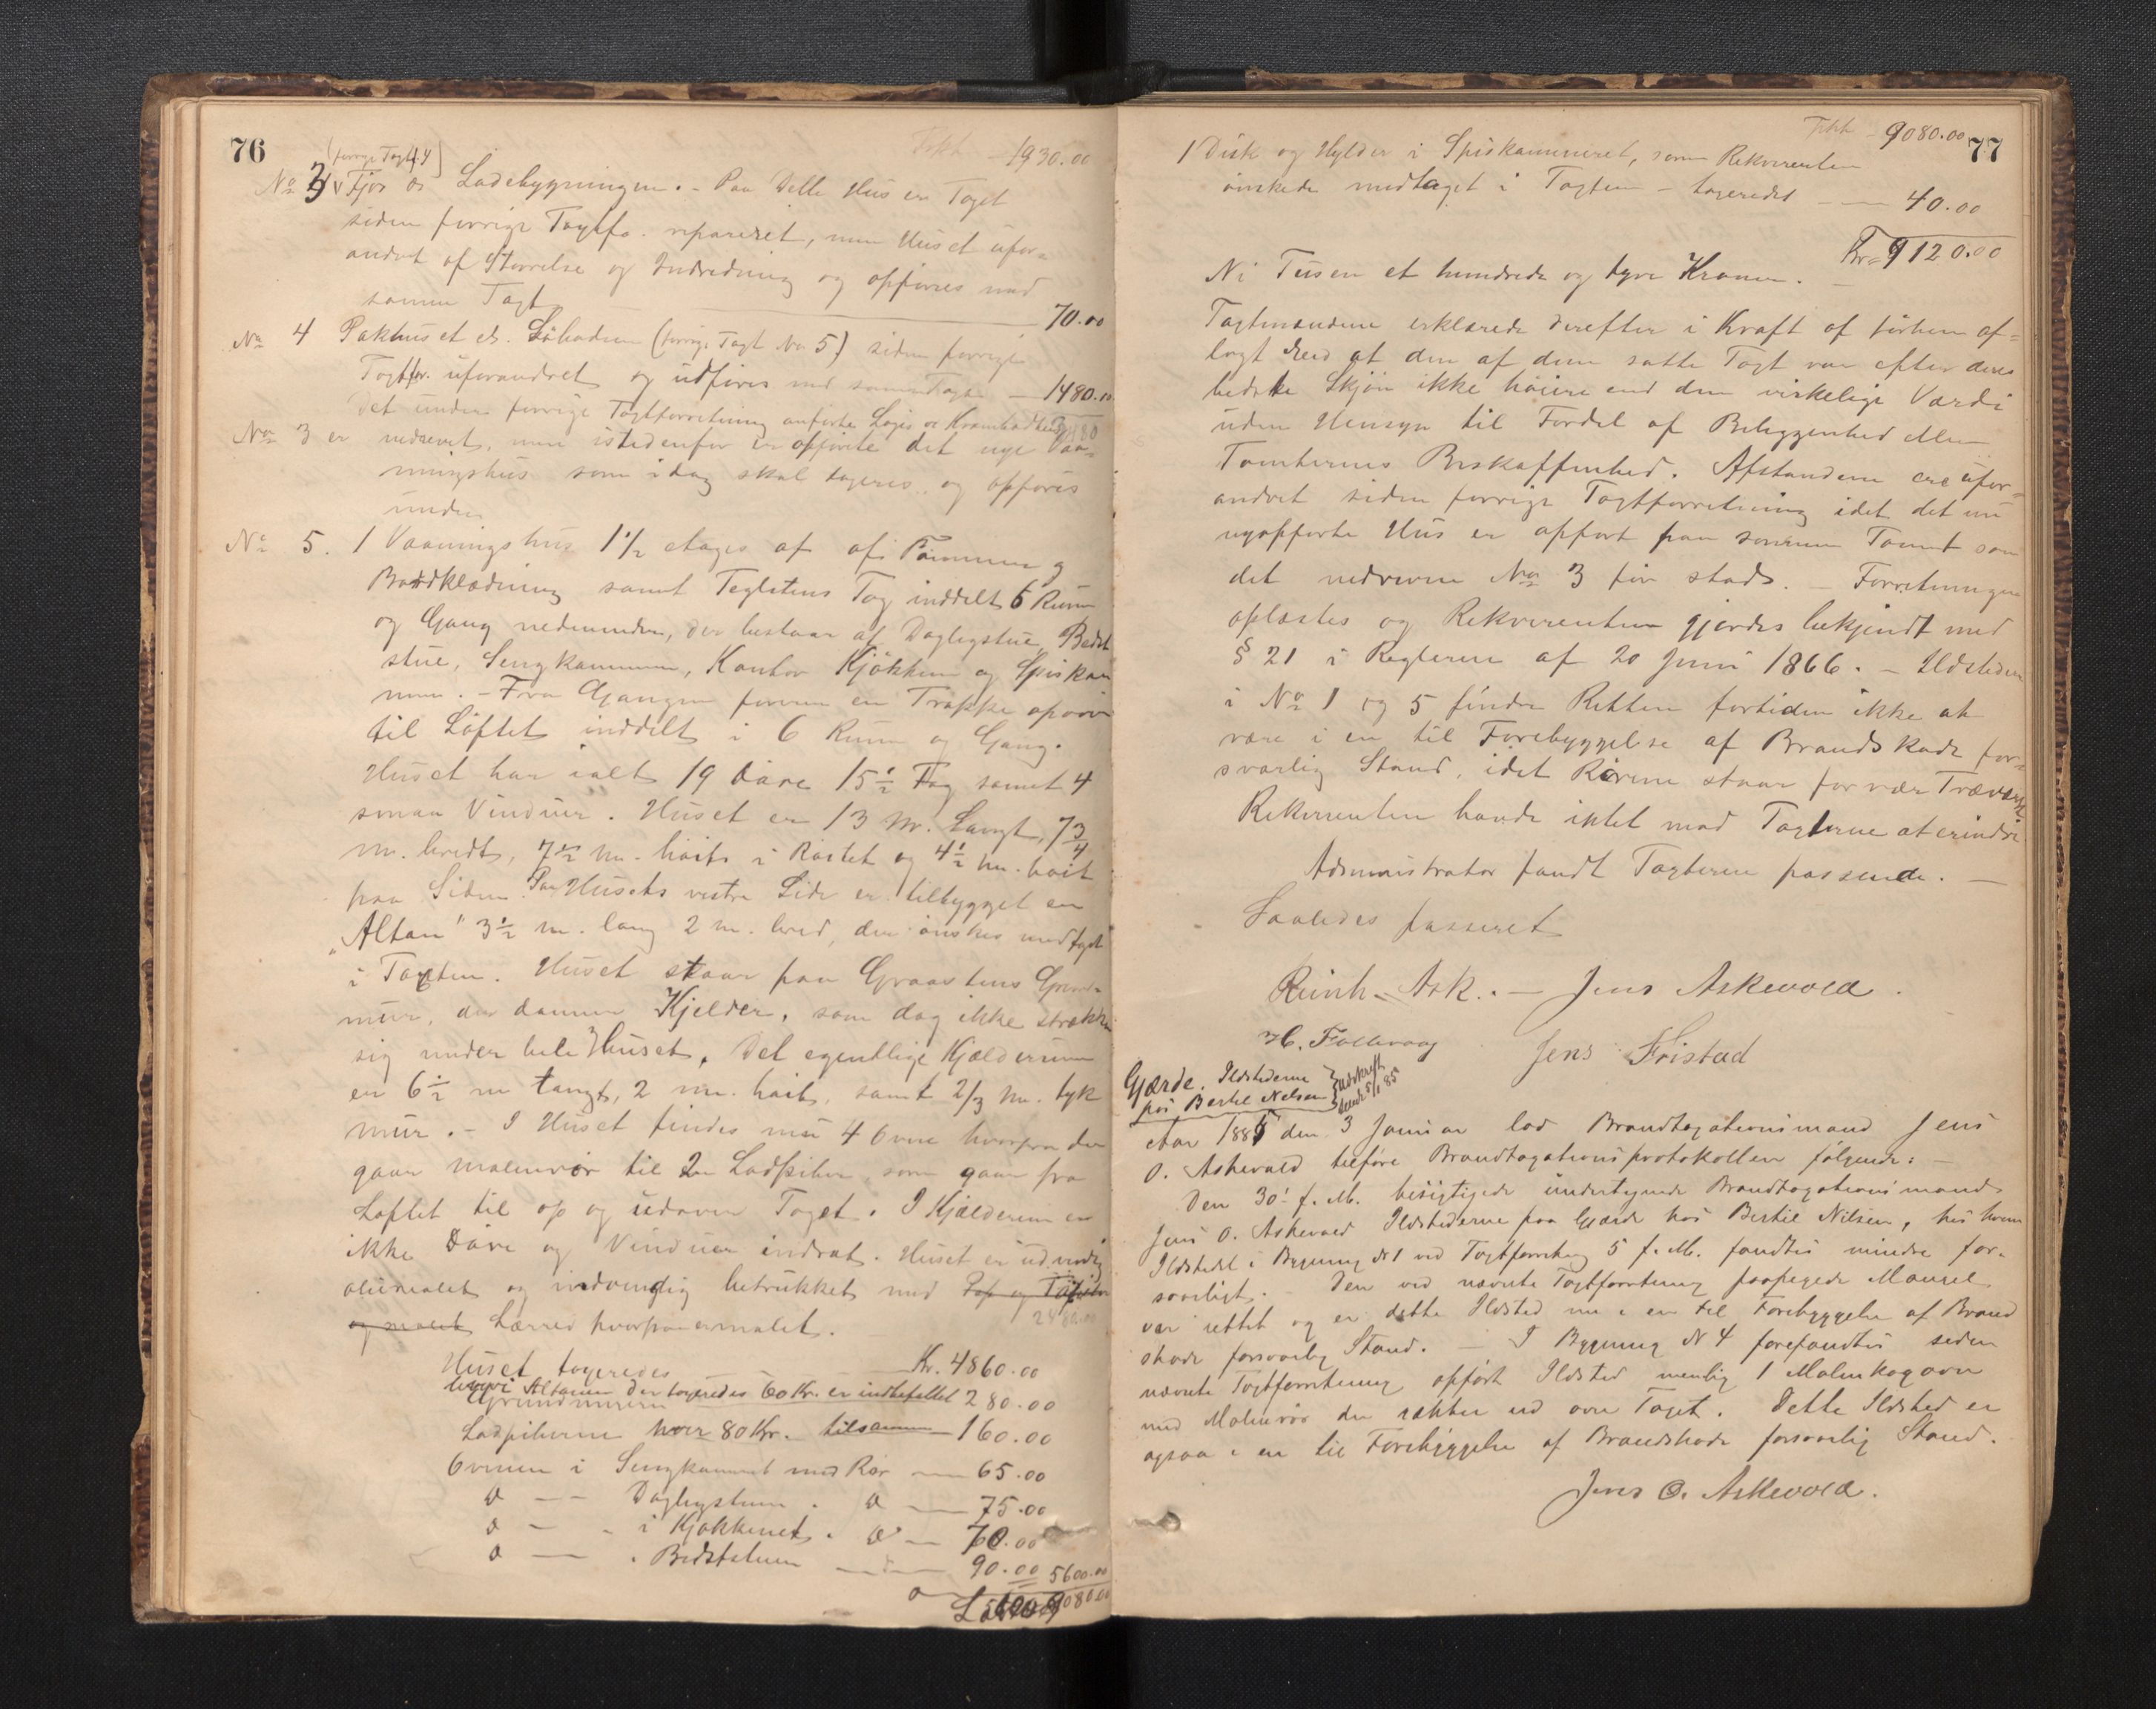 76
Trkt 1930.00
(forrige Taxt f. 4)
No 3 Fjøs og Ladebygningen. - Paa dette Hus er Taget
siden forrige Taxtfo. repareret, men Huset ufor-
andret af Størrelse og Indredning og opføres med
samme Taxt 70.00
No 4 Pakhuset el. Søboden (forrige Taxt No 5) siden forrige
Taxtfor. uforandret og udføres med samme Taxt 1480.00
Det under forrige Taxtforretning anførte Logis og Krambodhus
No 3 er nedrevet, men istedenfor er opførte det nye Vaa-
ningshus som idag skal taxeres og opføres
under
No 5. 1 Vaaningshus 1 1/2 etages af Tømmer og
Bordklædning samt Teglstens Tag inddelt 6 Rum
og Gang nedenunder, der bestaar af Daglystue, Bedst
stue, Sengkammer, Kontor Kjøkken og Spiskam
mer. - Fra Gangen fører en Trappe op
til Loftet inddelt i 6 Rum og Gang.
Huset har ialt 19 Døre 15 1/2 Fag samt 4
smaa Vinduer. Huset er 13 m. Langt, 7 3/4
m. bredt, 7 1/2 m. høit i Røstet og 4 1/2 m. høit
paa Siden. Paa Husets vestre Side er tilbygget en
"Altan" 3 1/2 m. lang 2 m. bred, der ønskes medtaget
i Taxten. Huset staar paa Graastens Grund-
mur, der danner Kjelder, som dog ikke strækker
sig under hele Huset. Det egentlige Kjælderrum
er 6 1/2 m langt, 2 m. høit, samt 2/3 m. tyk
mur. - I Huset findes nu 4 Ovne hvorfra der
gaar malmrør til 2 Ladpiber, som gaar fra
Loftet til op og udover Taget. I Kjælderen er
ikke Døre og Vinduer indsat. Huset er udvendig
oliemalet og indvendig betrukket med Pap og Tapeter
og malet Lærred hvorpaa ermalet.
Huset taxeredes Kr. 4860.00
hvori Altanen der taxeredes 60 Kr. er indbefattet
Grundmuren 280.00
Ladpiberne hver 80 Kr. tilsammen 160.00
Ovnen i Sengkammeret med Rør 65.00
d — Daglystuen. d — 75.00
d — i Kjøkkenet. d — 70.00
d — Bedstestuen — 90.00 5600.00
9080.00
77
Trkt 9080.00
1 Disk og Hylder i Spiskammeret, som Rekvirenten
ønskede medtaget i Taxten - taxeredes 40.00
Kr. 9120.00
Ni Tusen et hundrede og tyve Kroner.
Taxtmændene erklærede derefter i Kraft af førhen af-
lagt Eed at den af dem satte Taxt var efter deres
bedste Skjøn ikke høiere end den virkelige Værdi
uden Hensyn til Fordel af Beliggenhed eller
Tomternes Beskaffenhed. Afstandene ere ufor-
andret siden forrige Taxtforretning idet det nu
nyopførte Hus er opført paa samme Tomt som
det nedrevne No 3 før stod. - Forretningen
oplæstes og Rekvirenten gjordes bekjendt med
§ 21 i Reglerne af 20 Juni 1866. - Ildsteden
i No 1 og 5 finder Retten fortiden ikke at
være i en til Forebyggelse af Brandskade for-
svarlig Stand, idet Rørene staar for nær Træværk
Rekvirenten havde intet mod Taxterne at erindre
Administrator fandt Taxterne passende. -
Saaledes passeret
Reinh. Ask. - Jens Askevold.
H. Follevaag Jens Tristad
Gjærde. Ildstederne
hos Bertel Nelsen
Udskrift
5/1 85
Aar 1885 den 3 Januar lod Brandtaxationsmand Jens
O. Askevold tilføre Brandtaxationsprotokollen følgende: -
Den 30' f. M. besigtigede undertegnede Brandtaxationsmand
Jens O. Askevold Ildstederne paa Gjærde hos Bertil Nilsen, hos hvem
Ildstedet i Bygning No 1 ved Taxtforretning 5 f. M. fandtes mindre for-
svarligt. Den ved nævnte Taxtforretning paapegede Mangel
var rettet og er dette Ildsted nu i en til Forebyggelse af Brand
skade forsvarlig Stand. - I Bygning N 4 forefandtes siden
nævnte Taxtforretning opført Ildsted nemlig 1 Malmkogovn
med Malmrør der rækker ud over Taget. Dette Ildsted er
ogsaa i en til Forebyggelse af Brandskade forsvarlig Stand.
Jens O. Askevold.